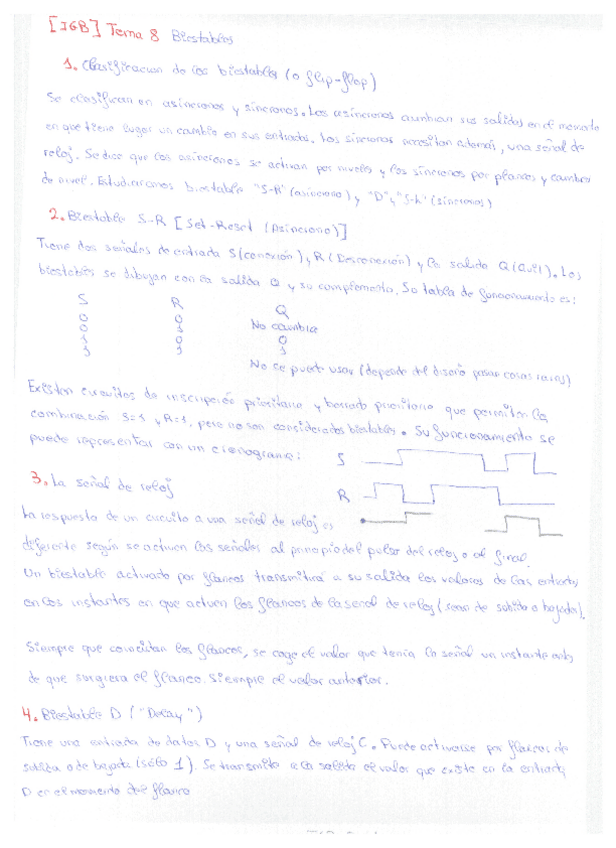 [IGB] Tema 8 Biestables
1. Clasificacion de los biestables (o flip-flop)
Se clasifican en asíncronos y síncronos. Los asíncronos cambian sus salidas en el momento
en que tiene lugar un cambio en sus entradas. Los síncronos necesitan además, una señal de
reloj. Se dice que los asíncronos se activan por niveles y los síncronos por flancos y cambios
de nivel. Estudiaremos biestable "S-R" (asíncrono) y "D" y (síncronos)
2. Biestable S-R [Set-Reset (Asíncrono)]
Tiene dos señales de entrada S (conexión) y R (Desconexión) y la salida Q (Out). Los
biestables se dibujan con la salida Q y su complemento. Su tabla de funcionamiento es:
S R Q
0 0 No cambia
0 1 0
1 0 1
1 1
No se puede usar (depende del diseño pasan cosas raras)
Existen circuitos de inscripción prioritaria y borrado prioritario que permiten la
combinación S=1 y R=1, pero no son considerados biestables. Su funcionamiento se
puede representar con un cronograma: S
3. La señal de reloj R
La respuesta de un circuito a una señal de reloj es
diferente según se activen las señales al principio del pulso del reloj o al final.
Un biestable activado por flancos transmitirá a su salida los valores de las entradas
en los instantes en que actuen los flancos de la señal de reloj (sean de subida o bajada).
Siempre que coincidan los flancos, se coge el valor que tenía la señal un instante antes
de que surgiera el flanco. Siempre el valor anterior.
4. Biestable D ("Delay")
Tiene una entrada de datos D y una señal de reloj C. Puede activarse por flancos de
subida o de bajada (sólo 1). Se transmite a la salida el valor que existe en la entrada
D en el momento del flanco